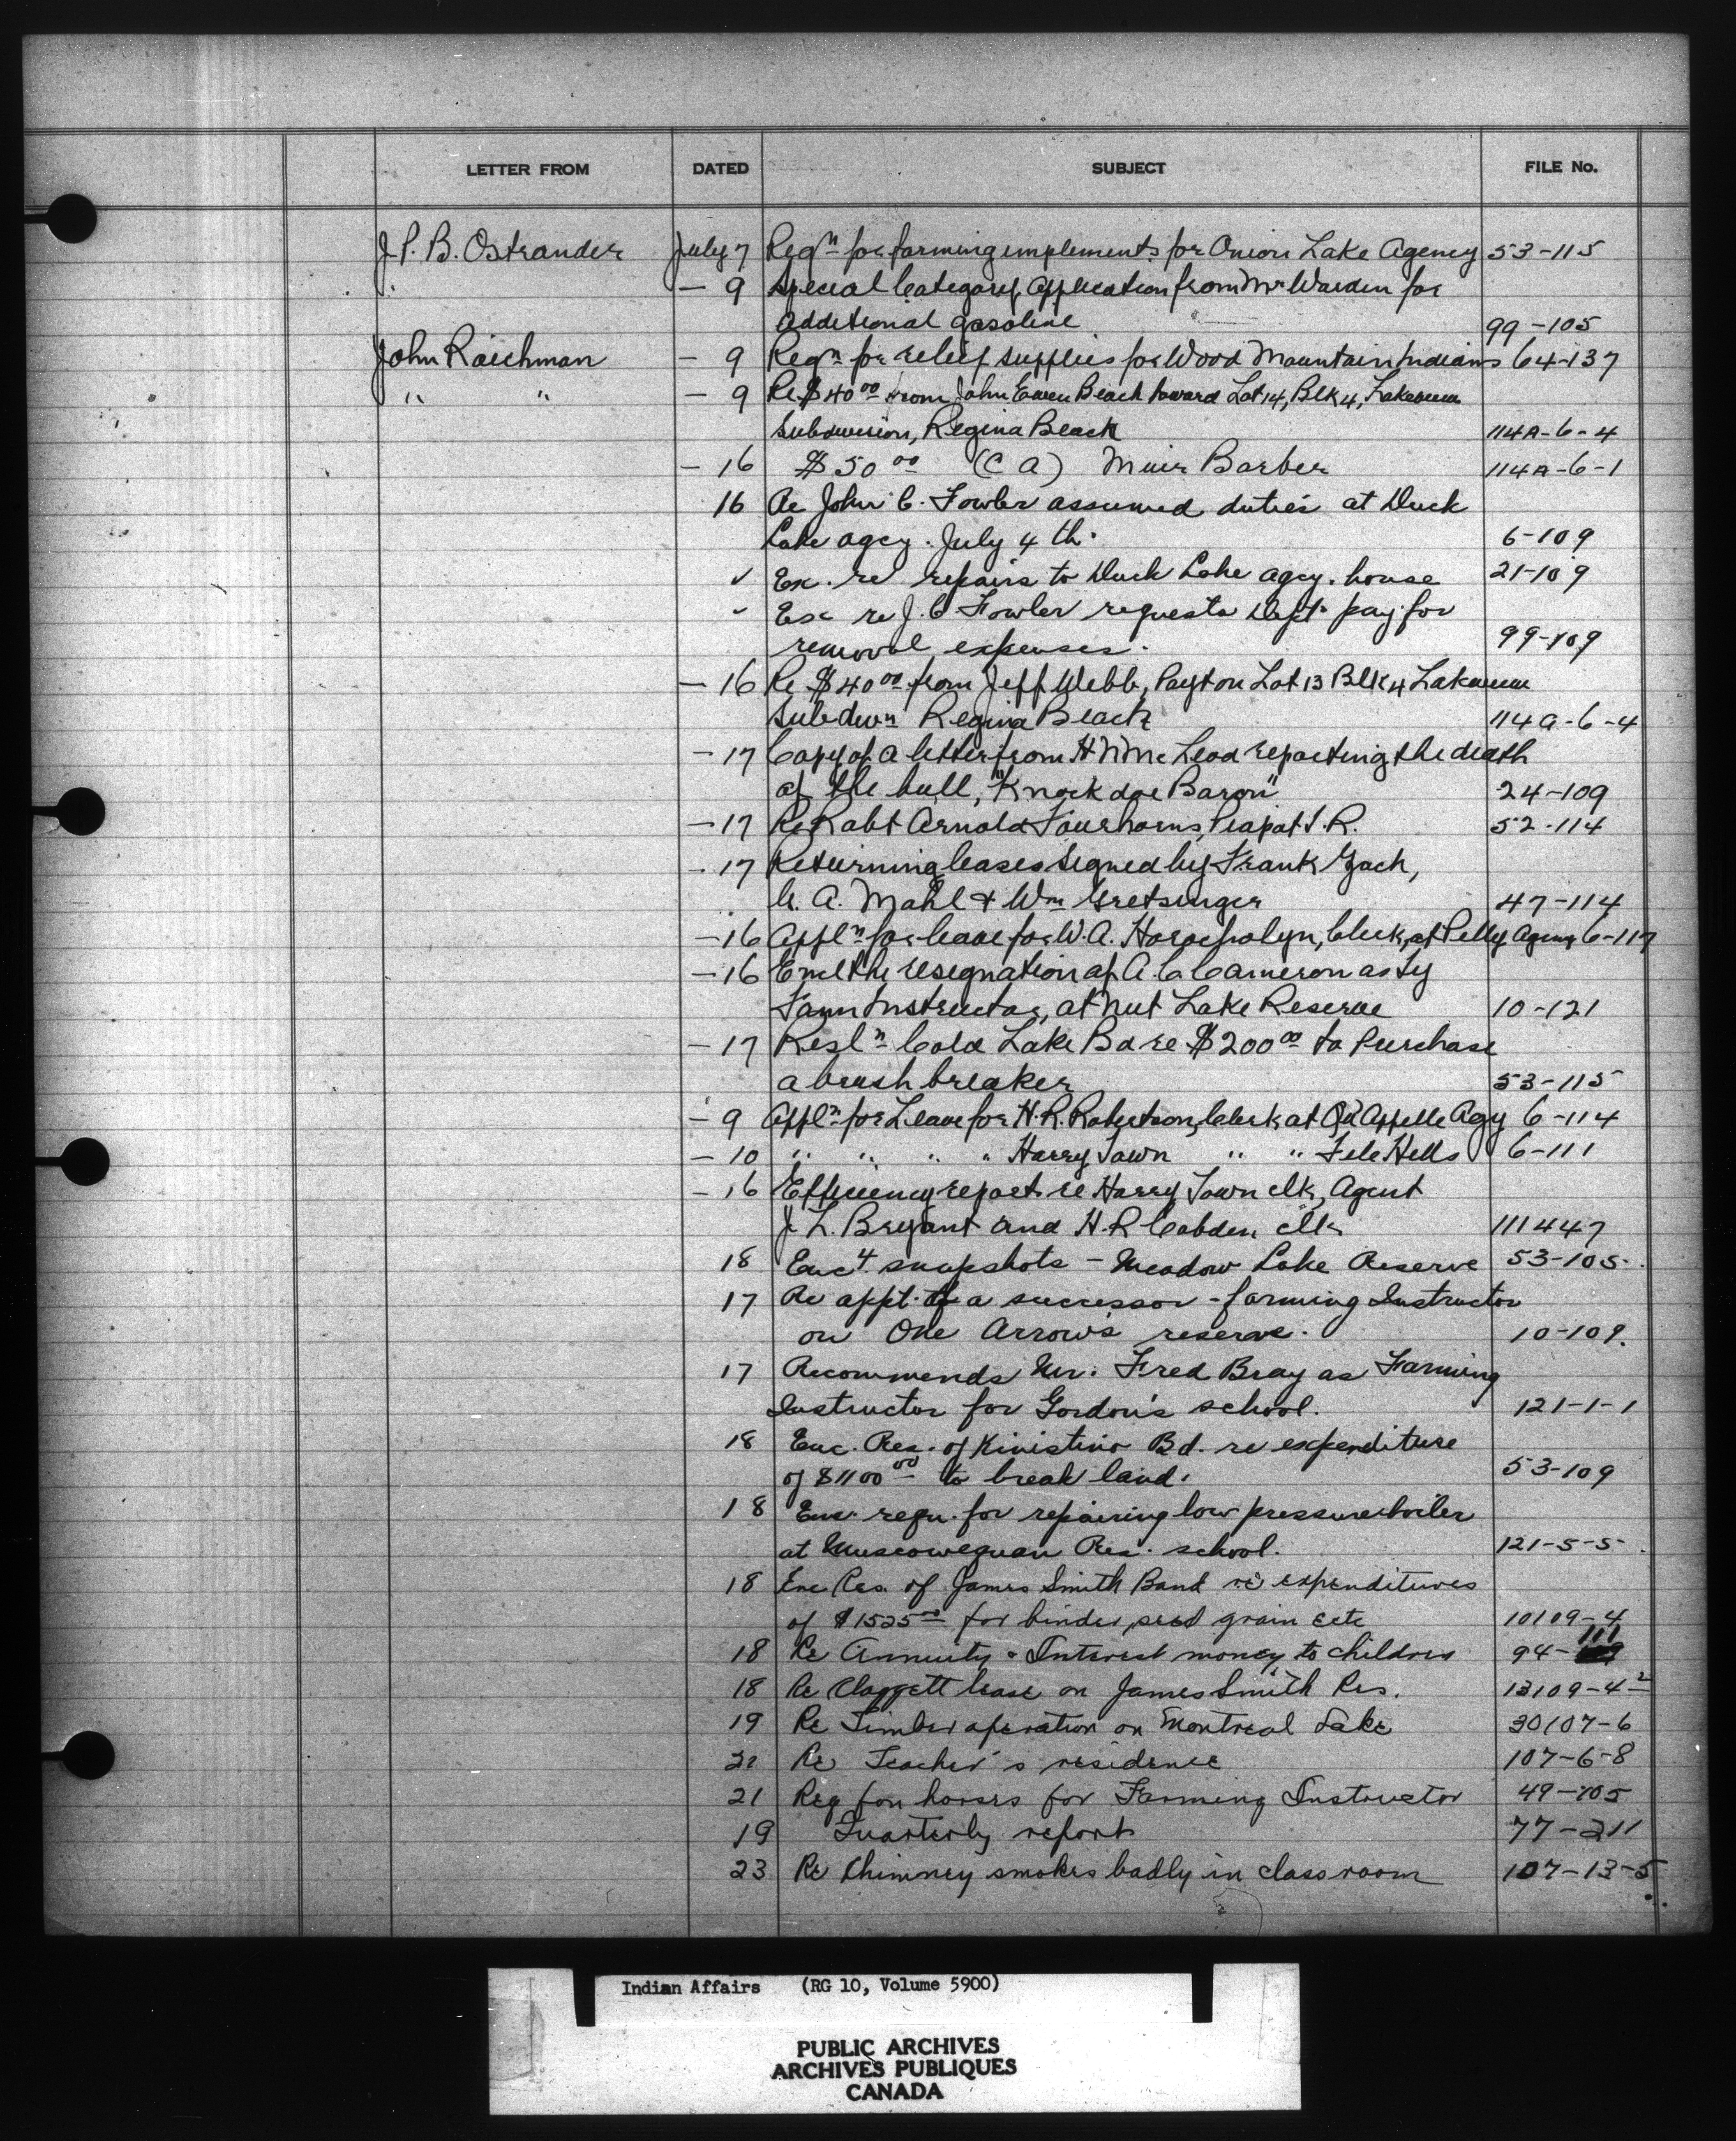 LETTER FROM DATED SUBJECT FILE No.
J. P. B. Ostrander July 7 Reqn for farming implements for Onion Lake Agency 53-115
" - 9 Special Category Application from Mr Warden for
additional gasoline 99-105
John Raichman - 9 Reqn for relief supplies for Wood Mountain Indians 64-137
" " - 9 Re $40 00 from John Ewen Beach toward Lot 14, Blk 4, Lakeview
Subdivision, Regina Beach 114A-6-4
- 16 $50 00 (C A) Muir Barber 114A-6-1
16 Re John C. Fowler assumed duties at Duck
Lake agcy. July 4 th. 6-109
✓ Ex. re repairs to Duck Lake agcy. house 21-109
✓ Ex re J. C Fowler requests Dept. pay for
removal expenses. 99-109
- 16 Re $40 00 from Jeff Webb, Payt on Lot 13 Blk 4 Lakeview
Subdivn Regina Beach 114A-6-4
- 17 Copy of a letter from H N McLeod reporting the death
of the bull, "Knock doe Baron" 24-109
- 17 Re Robt Arnold Fourhorns, Piapot I.R. 52-114
- 17 Returning leases signed by Frank Gach,
A. Mahl & Wm Gretsinger 47-114
- 16 Appln for leave for W. A. clerk, at Pelly Agency 6-117
- 16 Encl the resignation of A C Cameron as Ty
Farm Instructor, at Nut Lake Reserve 10-121
- 17 Resln Cold Lake Bd re $200 00 to Purchase
a brush breaker 53-115
- 9 Appln for Leave for H. R. Robertson, Clerk at Qu'Appelle Agy 6-114
- 10 " " " " Harry Tawn " " File Hills 6-111
- 16 Efficiency report re Harry Tawn clk, Agent
J. L. Bryant and H. R Cobden clk 111447
18 Enc 4 snapshots - Meadow Lake Reserve 53-105.
17 Re appt. of a successor - farming Instructor
on One Arrow's reserve. 10-109.
17 Recommends Mr. Fred Bray as Farming
Instructor for Gordon's school. 121-1-1
18 Enc. Res. of Kinistino Bd. re expenditure
of $1100 00 to break land. 53-109
18 Enc. reqn. for repairing low pressure boiler
at Muscowequan Res. school. 121-5-5
18 Enc Res. of James Smith Band re expenditures
of $1525 00 for binder, seed grain etc 10109-4
18 Re Annuity & Interest money to children 94-111
18 Re Claggett lease on James Smith Res. 13109-4-2
19 Re Timber operation on Montreal Lake 30107-6
21 Re Teacher's residence 107-6-8
21 Req for horses for Farming Instructor 49-105
19 Quarterly report 77-211
23 Re Chimney smokes badly in class room 107-13-5
Indian Affairs (RG 10, Volume 5900)
PUBLIC ARCHIVES
ARCHIVES PUBLIQUES
CANADA